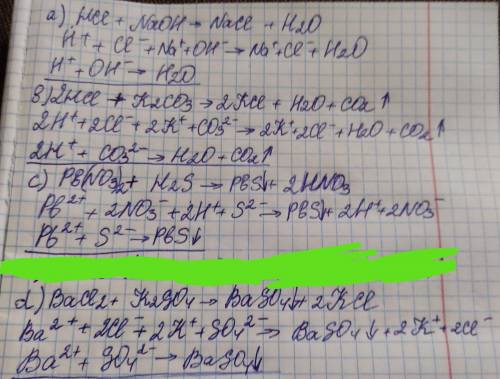 a) HCl + NaOH → NaCl + H2O
H⁺ + Cl⁻ + Na⁺ + OH⁻ → Na⁺ + Cl⁻ + H2O
H⁺ + OH⁻ → H2O
b) 2HCl + K2CO3 → 2KCl + H2O + CO2↑
2H⁺ + 2Cl⁻ + 2K⁺ + CO3²⁻ → 2K⁺ + 2Cl⁻ + H2O + CO2↑
2H⁺ + CO3²⁻ → H2O + CO2↑
c) Pb(NO3)2 + H2S → PbS↓ + 2HNO3
Pb²⁺ + 2NO3⁻ + 2H⁺ + S²⁻ → PbS↓ + 2H⁺ + 2NO3⁻
Pb²⁺ + S²⁻ → PbS↓
d) BaCl2 + K2SO4 → BaSO4↓ + 2KCl
Ba²⁺ + 2Cl⁻ + 2K⁺ + SO4²⁻ → BaSO4↓ + 2K⁺ + 2Cl⁻
Ba²⁺ + SO4²⁻ → BaSO4↓